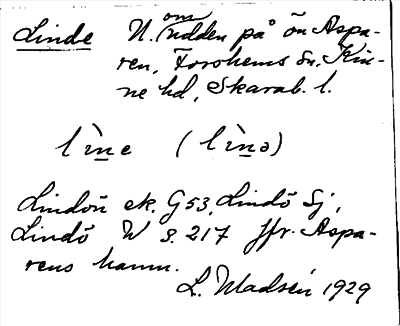 Linde N. om udden på ön Aspa-
ren, Forshems sn. Kin-
ne hd, Skarab. l.
lìne (lìnə)
Lindön ek. G 53, Lindö Sj,
Lindö W s. 217 Jfr. Aspa-
rens hamn.
L. Madsén 1929